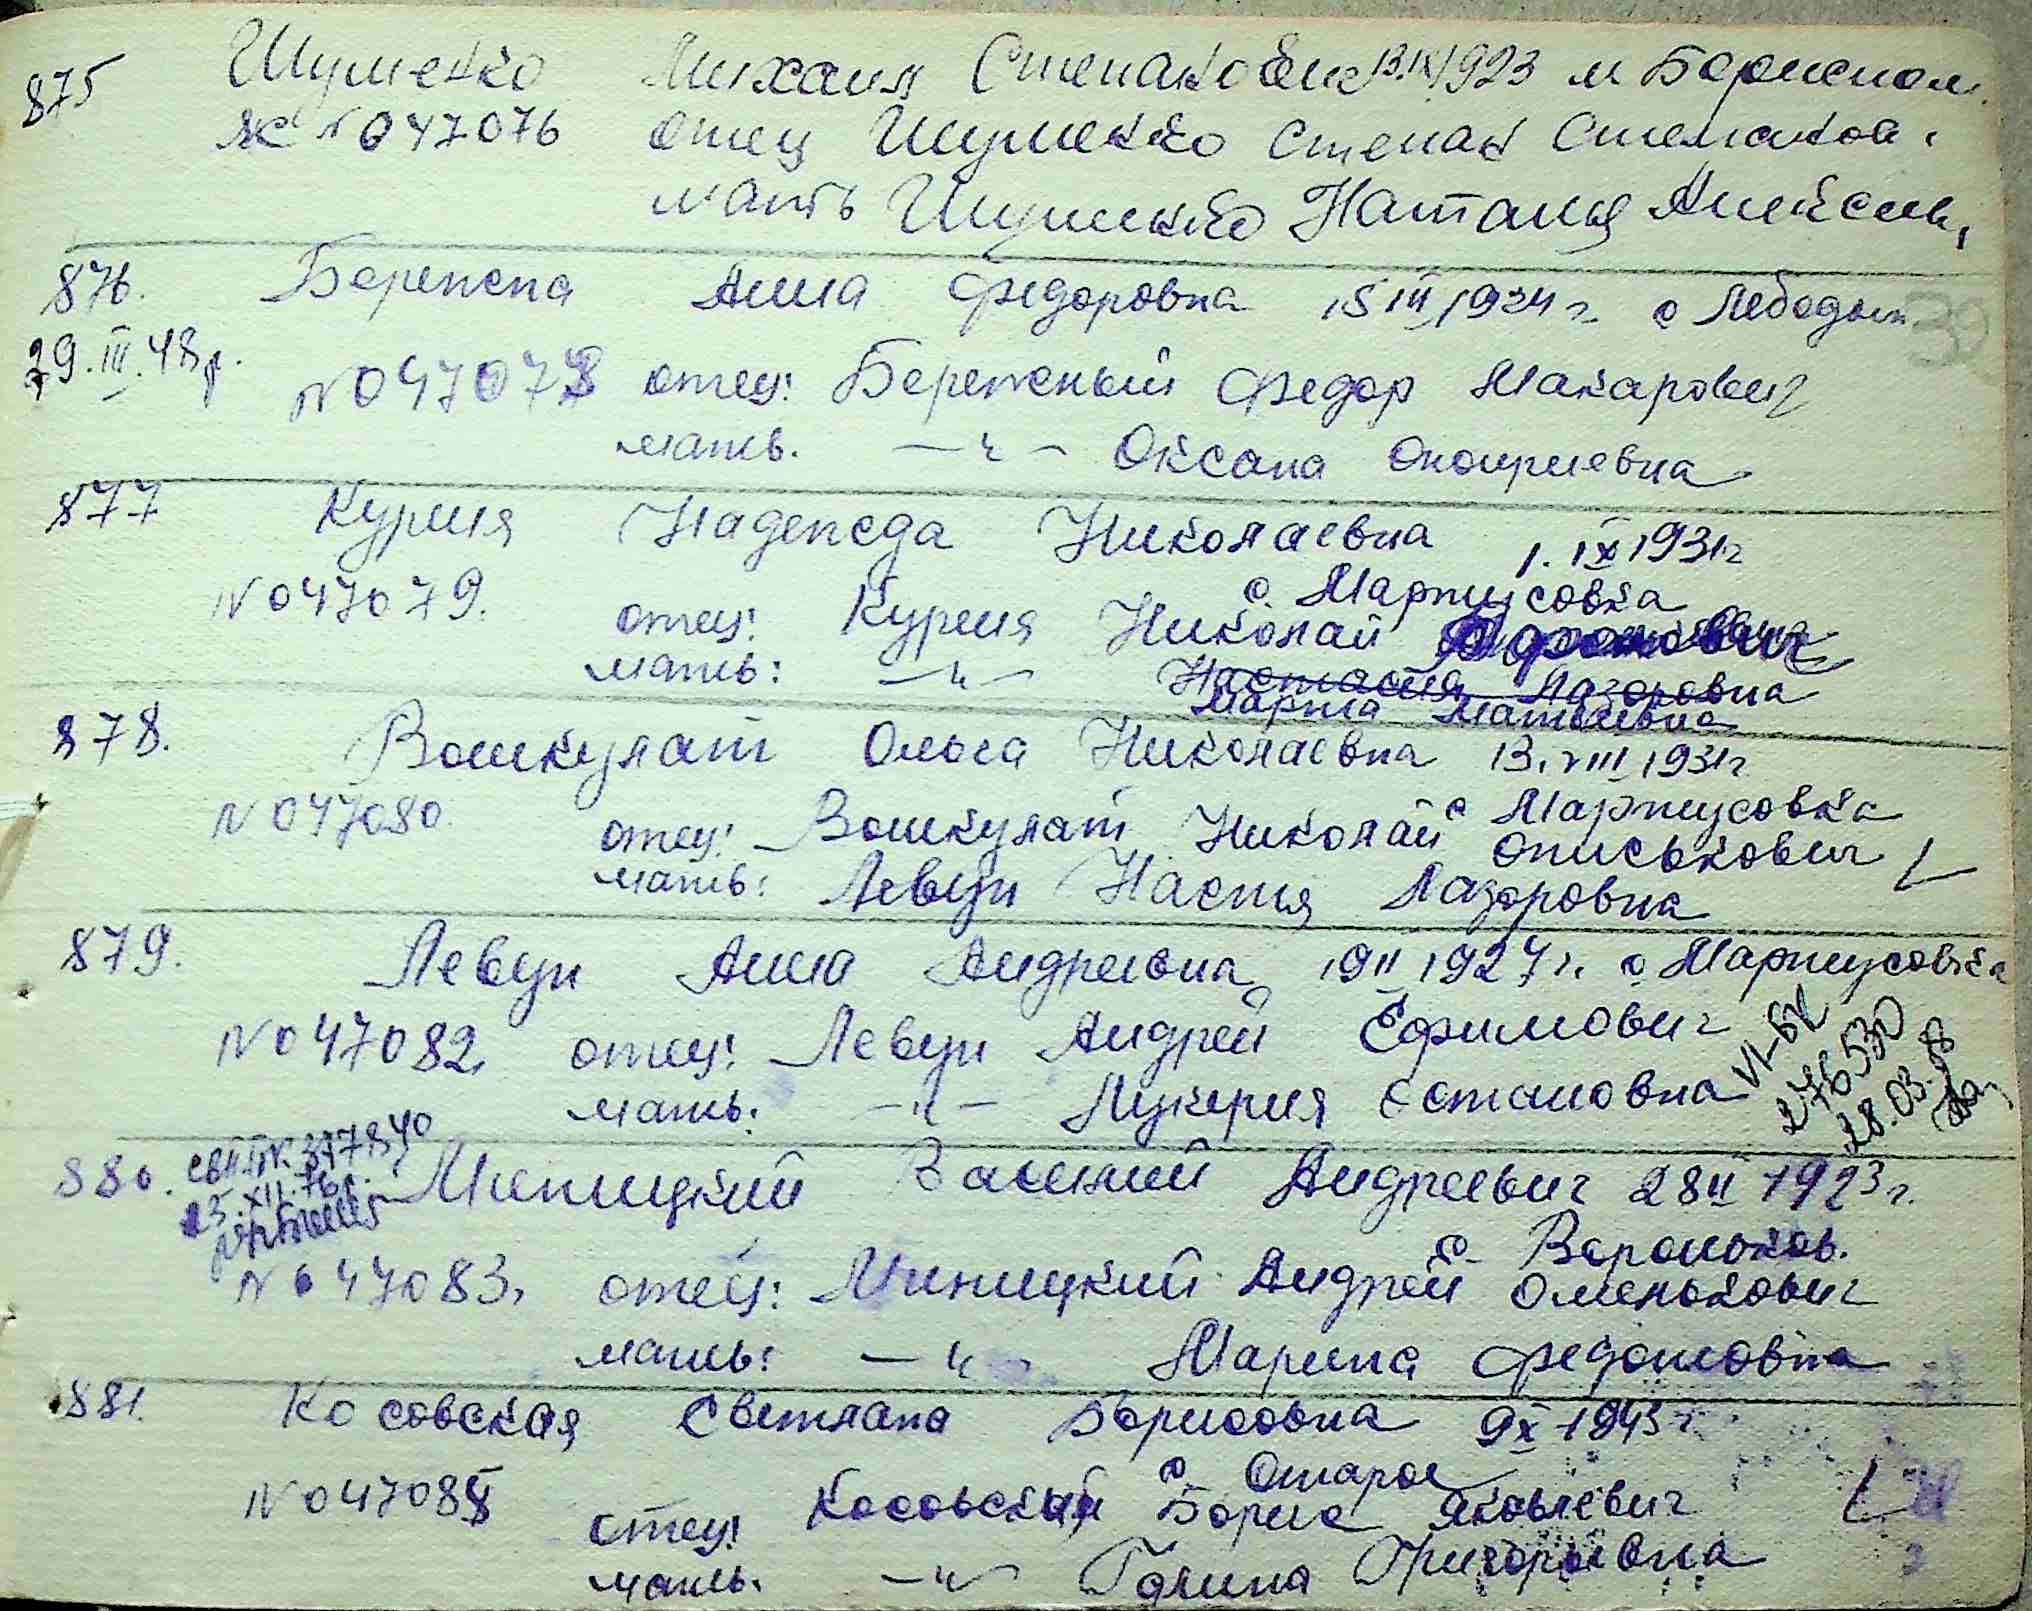 875 Шуменко Михаил Степанович 13.IX 1923 м Бориспол.
Ж N 047076 отец Шуменко Степан Степанов.
мать Шуменко Наталия Алексеев.
876. Бережна Анна Федоровна 15 III 1924 г. с Лебодын
29.III.48р. N 047078 отец: Бережный Федор Макарович
мать. —"— Оксана Оноприевна
877 Куриля Надежда Николаевна 1. IX 1931г
с. Мартусовка
N 047079. отец: Куриля Николай
мать: —"— Настасия Лазоровна
Мария Матвеевна
878. Вошкулат Ольга Николаевна 13.VIII 1931г
с Мартусовка
N 047080. отец: Вошкулат Николай Описькович
мать: Левун Настя Лазоровна
879. Левун Анна Андреевна 19 II 1927 г. с Мартусовка
N 047082. отец: Левун Андрей Ефимович
мать: —"— Лукерия Остаповна
VI-БК
276530
28.03.78
880. Миницкий Василий Андреевич 28 II 1923 г.
с. Вороньков.
N 047083. отец: Миницкий Андрей Оменькович
мать: —"— Марина Федотовна
881. Косовская Светлана Борисовна 9 X 1943 г.
с. Старое
N 047084 отец: Косовский Борис Яковлевич
мать. —"— Галина Григорьевна